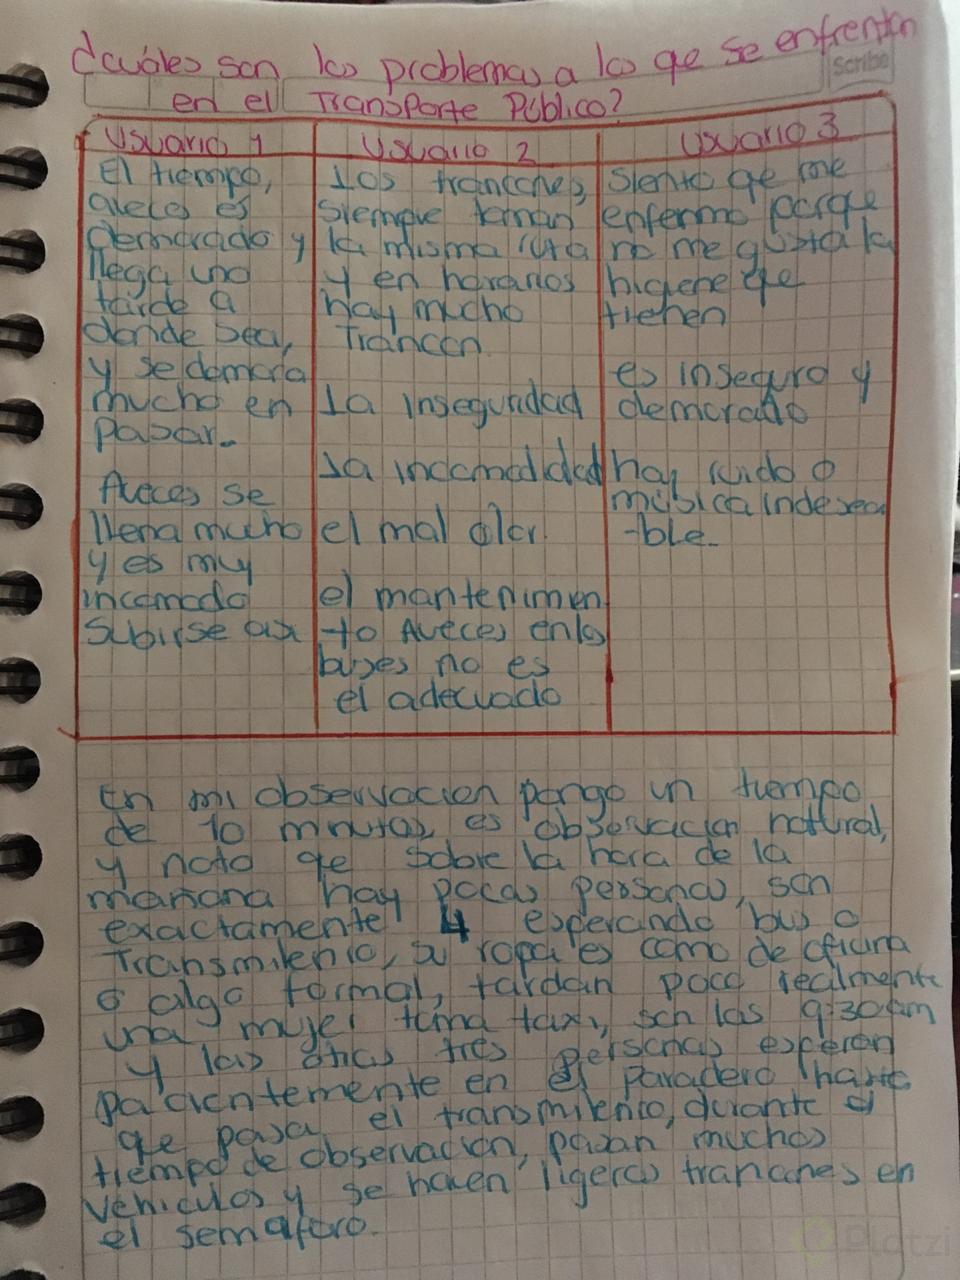 ¿cuáles son los problemas a los qe se enfrentan
en el Transporte Público?
Scribe
Usuario 1
El tiempo,
aveces es
Demorado y
llega uno
tarde a
donde sea,
y se demora
mucho en
pasar.
Aveces se
llena mucho
y es muy
incomodo
subirse asi
Usuario 2
Los trancones,
siempre toman
la misma ruta
y en horarios
hay mucho
Trancon.
La inseguridad
La incomodidad
el mal olor.
el mantenimien
-to Aveces en los
buses no es
el adecuado
Usuario 3
siento qe me
enfermo porque
no me gusta la
higiene qe
tienen
es inseguro y
demorado
hay ruido o
música indesea
-ble.
En mi observacion pongo un tiempo
de 10 minutos, es observacion natural,
y noto qe sobre la hora de la
mañana hay pocas personas, son
exactamente 4 esperando bus o
Transmilenio, su ropa es como de oficina
o algo formal, tardan poco realmente
una mujer toma taxi, son las 9:30am
y las otras tres personas esperan
pacientemente en el paradero hasta
qe pasa el transmilenio, durante el
tiempo de observacion, pasan muchos
vehiculos y se hacen ligeros trancones en
el semaforo.
Platzi